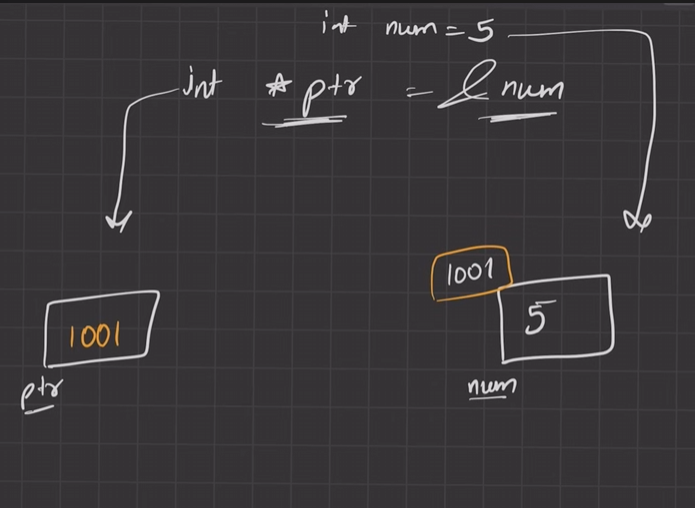 int num = 5
int *ptr = &num
1001
1001
5
ptr
num